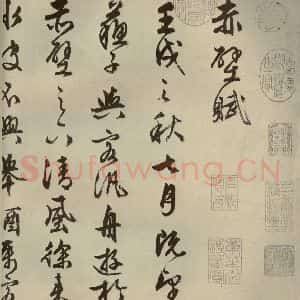 赤壁賦
壬戌之秋七月既望
蘇子與客泛舟遊於
赤壁之下清風徐來
水波不興舉酒屬客
Shufawang.CN